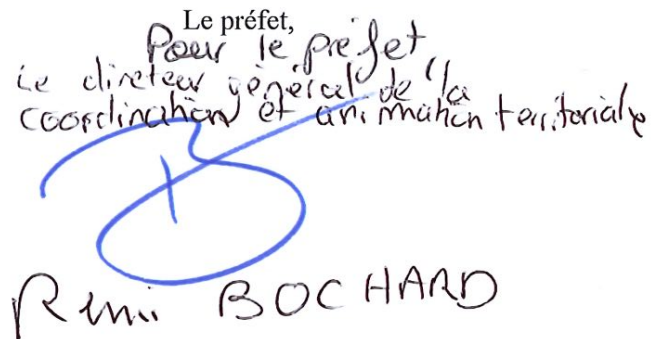 Le préfet,
Pour le préfet
Le directeur général de la
coordination et animation territoriale
Rémi BOCHARD